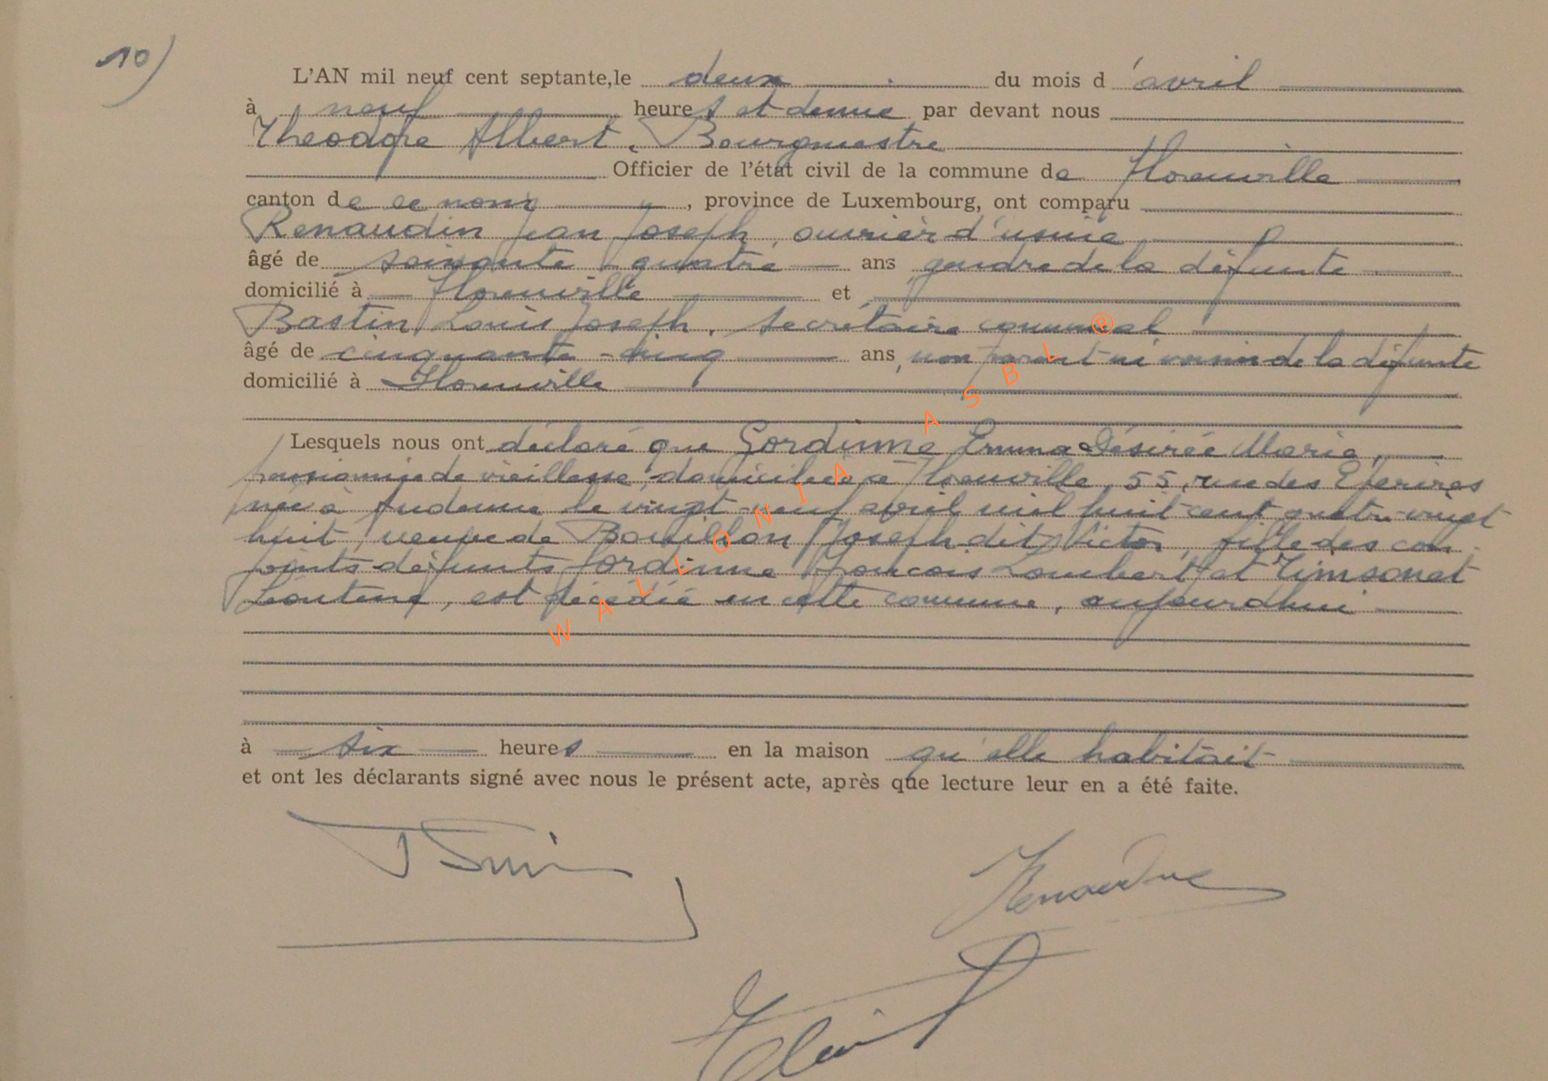 10)
L'AN mil neuf cent septante, le deux du mois d'avril
à neuf heures et demie par devant nous
Théodore Albert, Bourgmestre
Officier de l'état civil de la commune de Florenville
canton de ce nom, province de Luxembourg, ont comparu
Renaudin Jean Joseph, ouvrier d'usine
âgé de soixante quatre ans gendre de la défunte
domicilié à Florenville et
Bastin Louis Joseph, secrétaire communal
âgé de cinquante-cinq ans, non parent ni voisin de la défunte
domicilié à Florenville
Lesquels nous ont déclaré que Gordinne Emma Désirée Marie,
pensionnée de vieillesse, domiciliée à Florenville, 55, rue des Epérires
née à Andenne le vingt-neuf avril mil huit cent quatre-vingt
huit, veuve de Bouillon Joseph dit Victor, fille des con-
joints défunts Gordinne François Lambert et Timsonet
Léontine, est décédée en cette commune, aujourd'hui
à six heures en la maison qu'elle habitait
et ont les déclarants signé avec nous le présent acte, après que lecture leur en a été faite.
Renaudin
WALLONIA ASBL ®